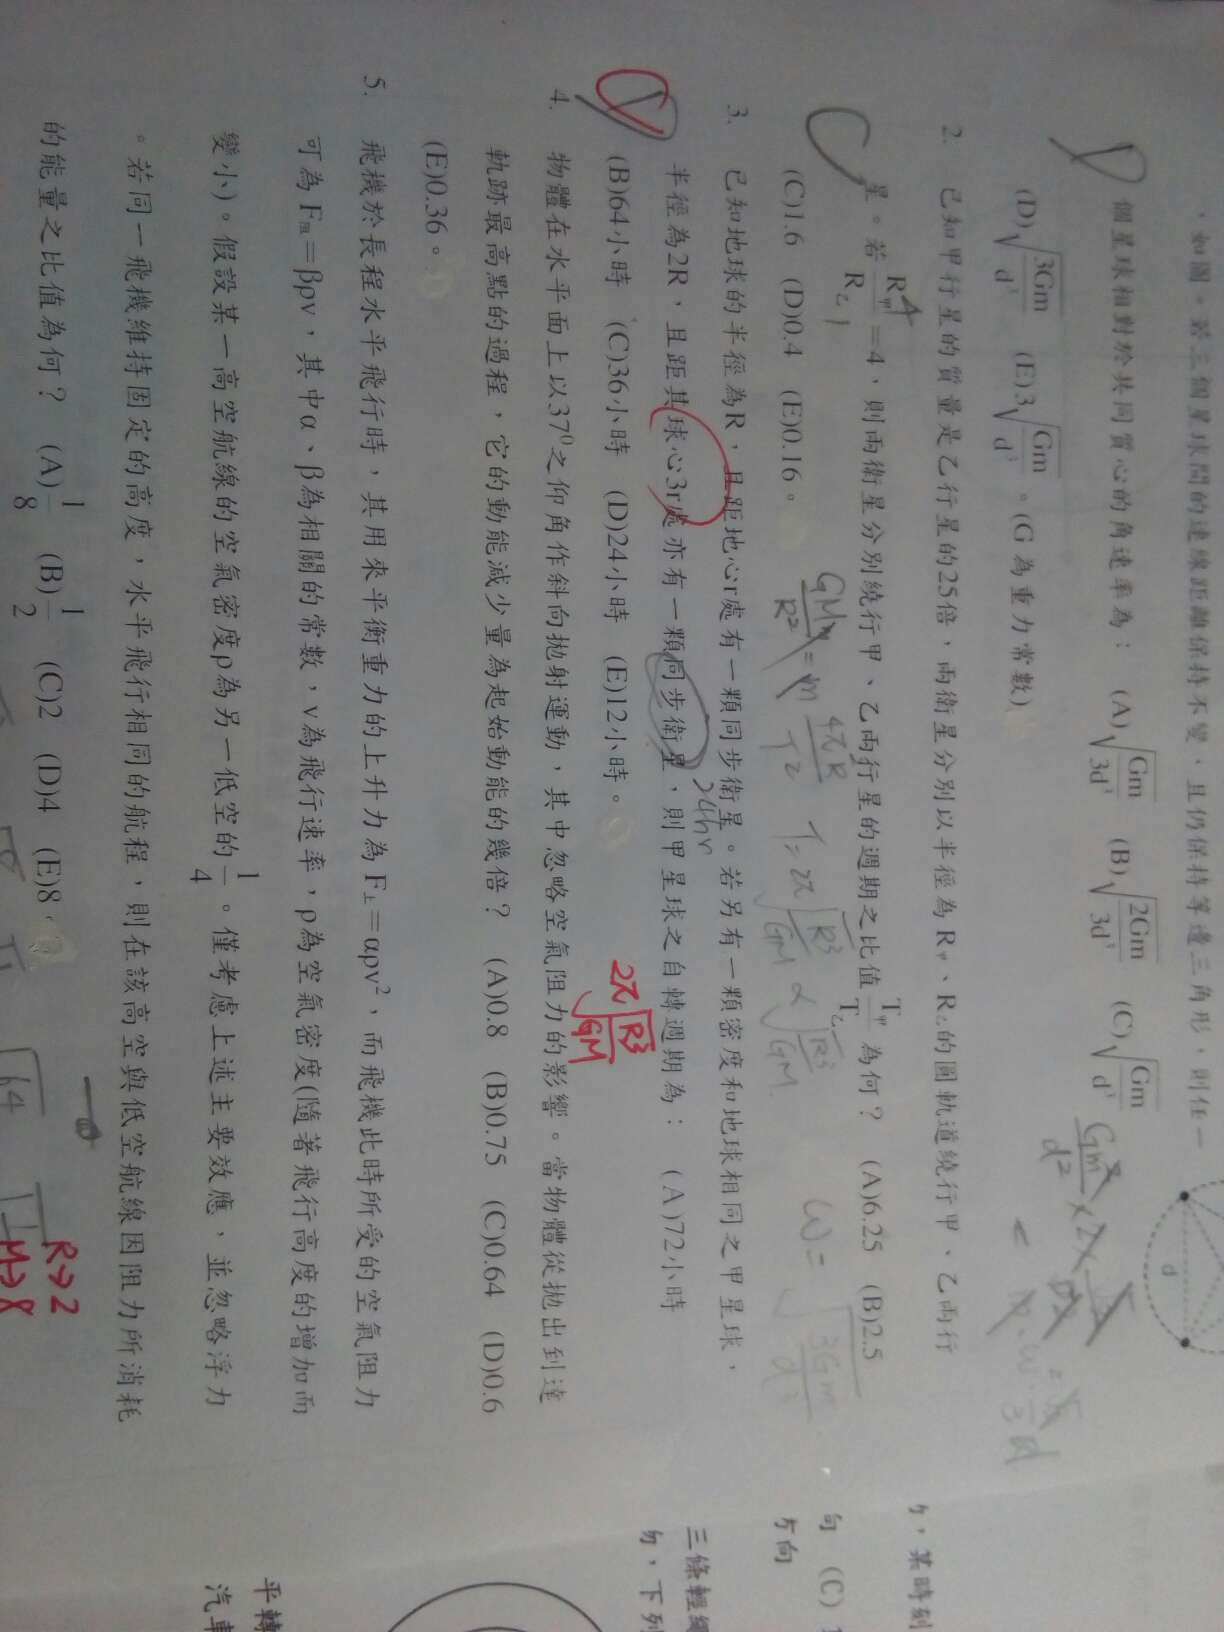 ，如圖。若三個星球間的連線距離保持不變，且仍保持等邊三角形，則任一
個星球相對於共同質心的角速率為： (A)√(Gm/3d³) (B)√(2Gm/3d³) (C)√(Gm/d³)
(D)√(3Gm/d³) (E)3√(Gm/d³)。(G為重力常數)
2. 已知甲行星的質量是乙行星的25倍，兩衛星分別以半徑為R甲、R乙的圓軌道繞行甲、乙兩行
星。若R甲/R乙=4，則兩衛星分別繞行甲、乙兩行星的週期之比值T甲/T乙為何？ (A)6.25 (B)2.5
(C)1.6 (D)0.4 (E)0.16。
3. 已知地球的半徑為R，且距地心r處有一顆同步衛星。若另有一顆密度和地球相同之甲星球，
半徑為2R，且距其球心3r處亦有一顆同步衛星，則甲星球之自轉週期為： (A)72小時
(B)64小時 (C)36小時 (D)24小時 (E)12小時。
4. 物體在水平面上以37⁰之仰角作斜向拋射運動，其中忽略空氣阻力的影響。當物體從拋出到達
軌跡最高點的過程，它的動能減少量為起始動能的幾倍？ (A)0.8 (B)0.75 (C)0.64 (D)0.6
(E)0.36。
5. 飛機於長程水平飛行時，其用來平衡重力的上升力為F上=αρv²，而飛機此時所受的空氣阻力
可為F阻=βρv，其中α、β為相關的常數，v為飛行速率，ρ為空氣密度(隨著飛行高度的增加而
變小)。假設某一高空航線的空氣密度ρ為另一低空的1/4。僅考慮上述主要效應，並忽略浮力
。若同一飛機維持固定的高度，水平飛行相同的航程，則在該高空與低空航線因阻力所消耗
的能量之比值為何？ (A)1/8 (B)1/2 (C)2 (D)4 (E)8
D
C
4
1
24hr
GM/R²=m4π²R/T²
T=2π√(R³/GM) ∝ √(R³/GM)
2π√(R³/GM)
ω=√(3Gm/d³)
R→2
M→8
64
d
三條輕繩
勻，下列
句 (C)
方向
，某時刻
平轉
汽車